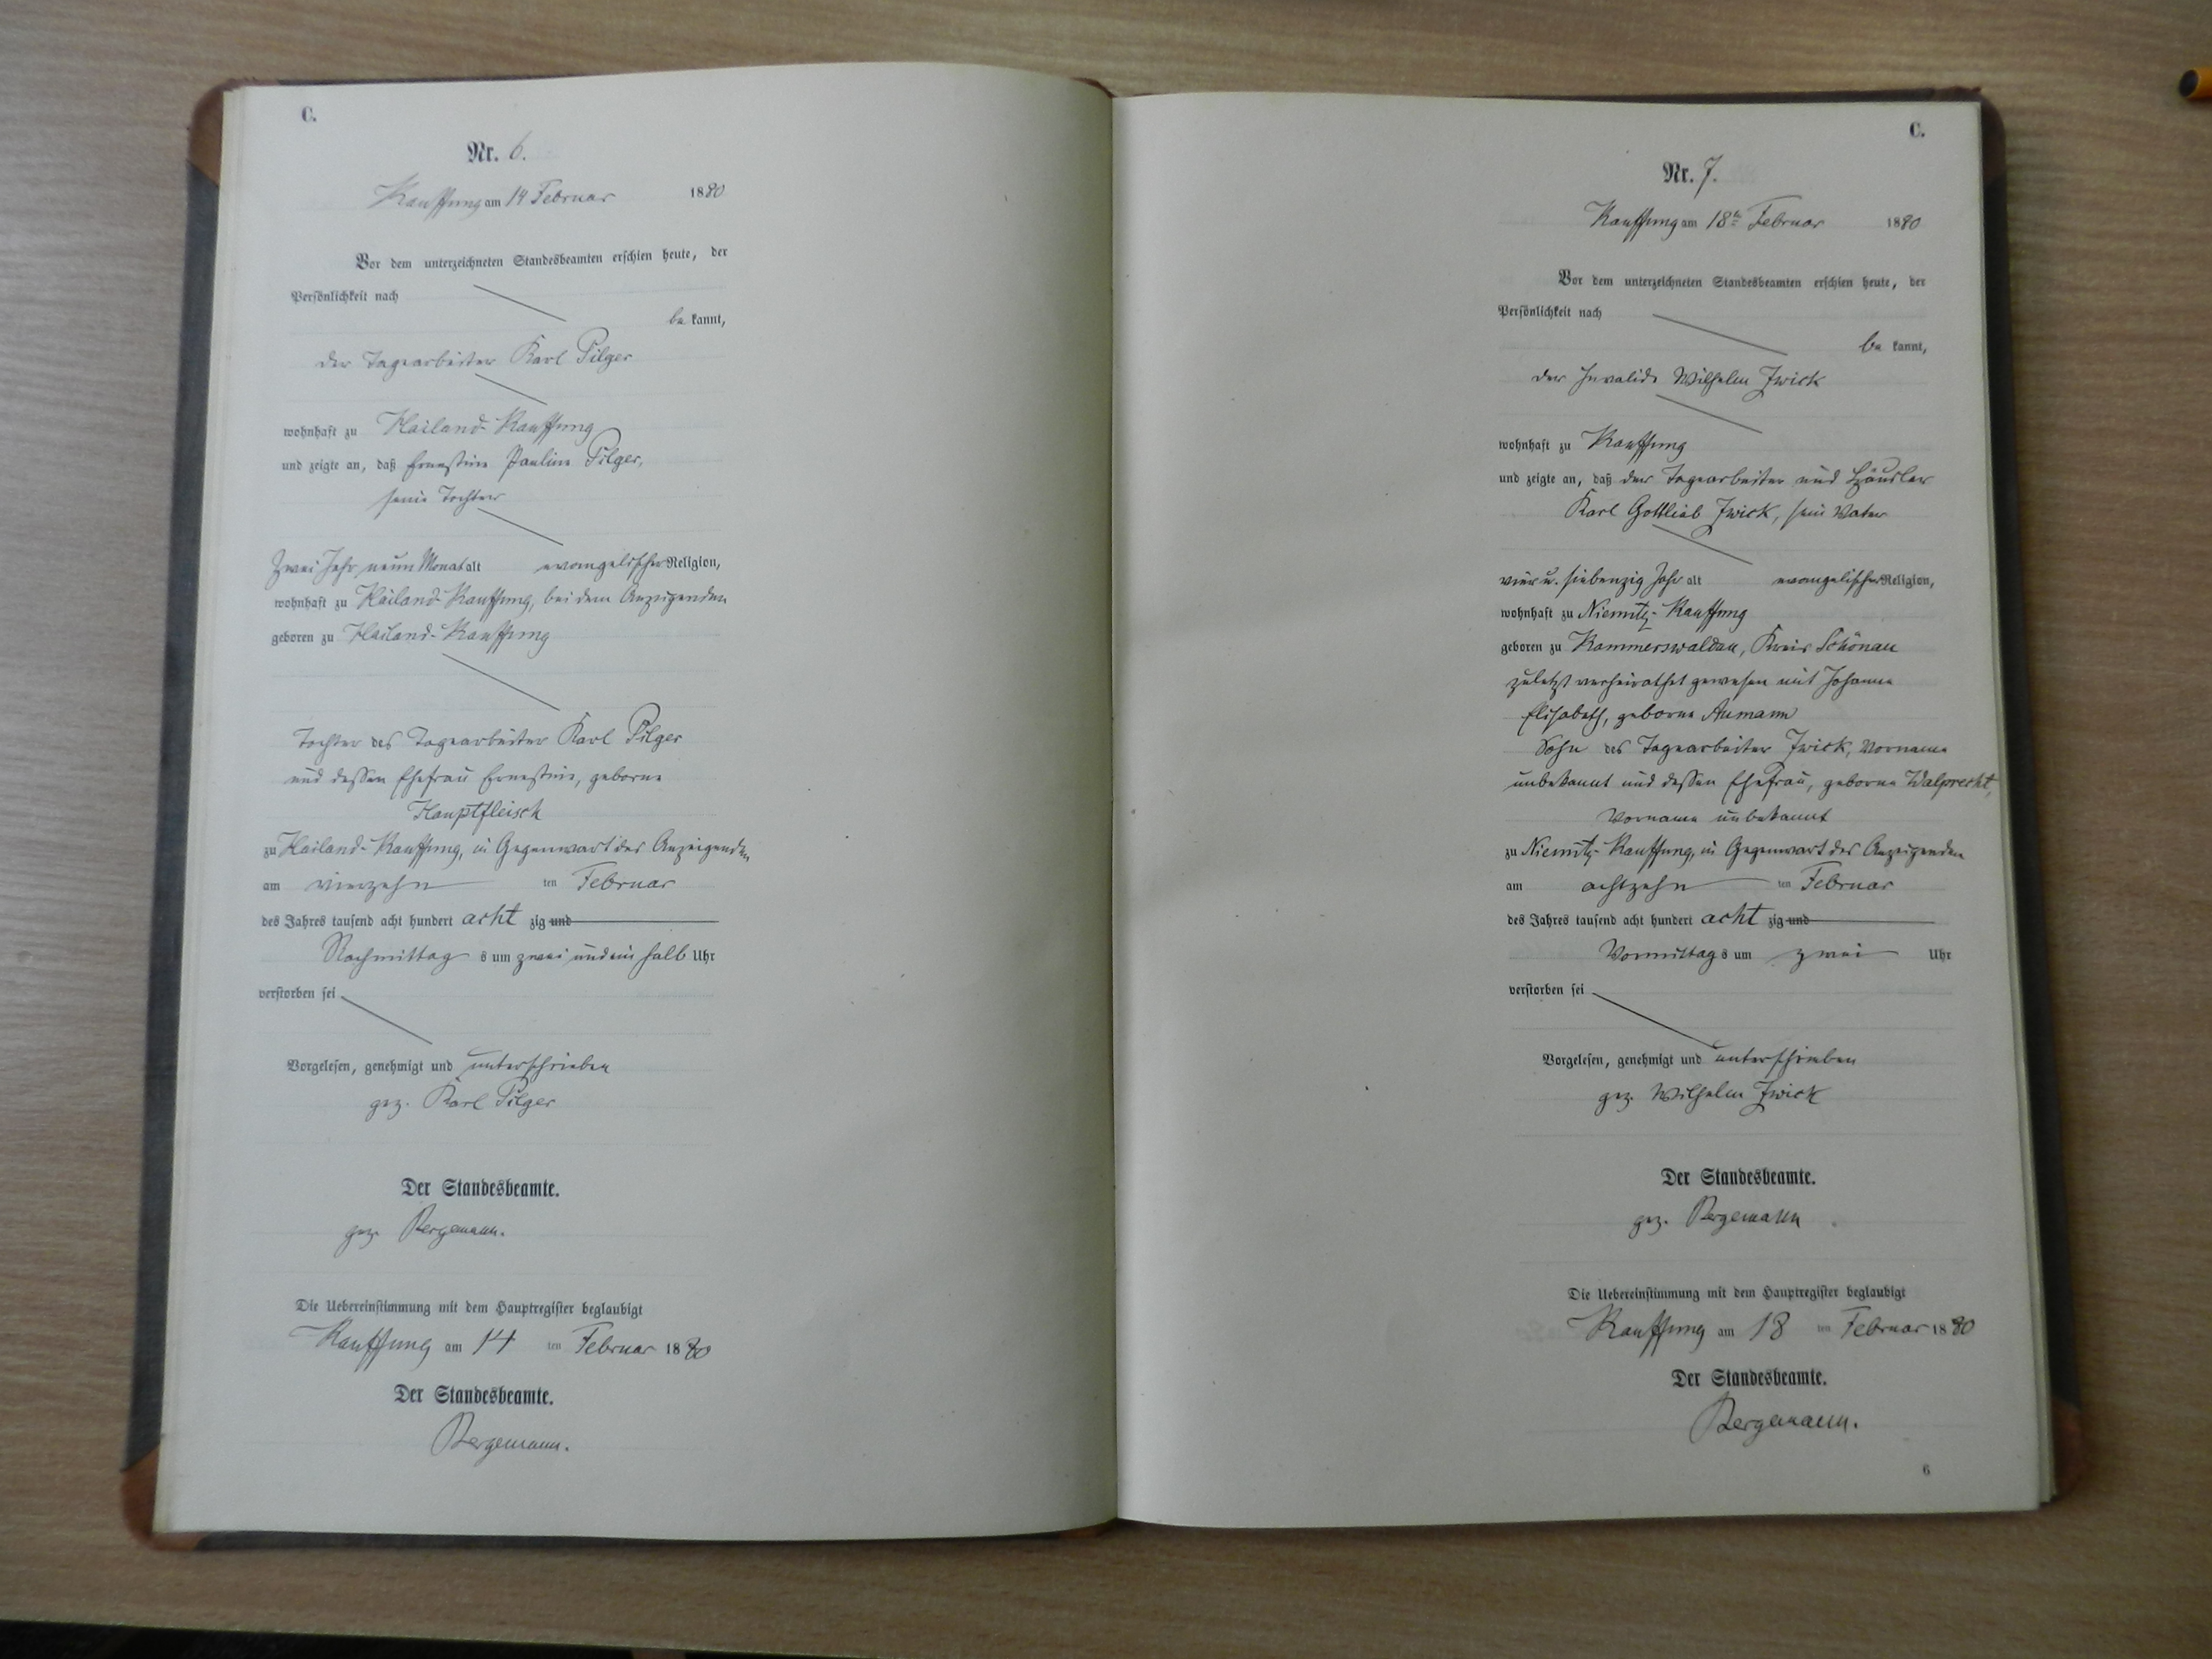 C.
Nr. 6.
Kauffung am 14 Februar 1880
Vor dem unterzeichneten Standesbeamten erschien heute, der
Persönlichkeit nach
be kannt,
der Tagearbeiter Karl Pilger
wohnhaft zu Hailand-Kauffung
und zeigte an, daß Ernestine Pauline Pilger,
seine Tochter
Zwei Jahr neun Monat alt evangelischer Religion,
wohnhaft zu Hailand-Kauffung, bei dem Anzeigenden
geboren zu Hailand-Kauffung
Tochter des Tagearbeiter Karl Pilger
und dessen Ehefrau Ernestine, geborne
Hauptfleisch
zu Hailand-Kauffung, in Gegenwart des Anzeigenden
am vierzehn ten Februar
des Jahres tausend acht hundert acht zig und
Nachmittag s um zwei und ein halb Uhr
verstorben sei
Vorgelesen, genehmigt und unterschrieben
gez. Karl Pilger
Der Standesbeamte.
gez. Bergemann.
Die Uebereinstimmung mit dem Hauptregister beglaubigt
Kauffung am 14 ten Februar 1880
Der Standesbeamte.
Bergemann.
C.
Nr. 7.
Kauffung am 18te Februar 1880
Vor dem unterzeichneten Standesbeamten erschien heute, der
Persönlichkeit nach
be kannt,
der Invalide Wilhelm Zwick
wohnhaft zu Kauffung
und zeigte an, daß der Tagearbeiter und Häusler
Karl Gottlieb Zwick, sein Vater
vier u. siebenzig Jahr alt evangelischer Religion,
wohnhaft zu Niemitz-Kauffung
geboren zu Kammerswaldau, Kreis Schönau
zuletzt verheirathet gewesen mit Johanne
Elisabeth, geborne Aumann
Sohn des Tagearbeiter Zwick, Vorname
unbekannt und dessen Ehefrau, geborne Walprecht,
Vorname unbekannt
zu Niemitz-Kauffung, in Gegenwart des Anzeigenden
am achtzehn ten Februar
des Jahres tausend acht hundert acht zig und
Vormittag s um zwei Uhr
verstorben sei
Vorgelesen, genehmigt und unterschrieben
gez. Wilhelm Zwick
Der Standesbeamte.
gez. Bergemann
Die Uebereinstimmung mit dem Hauptregister beglaubigt
Kauffung am 18 ten Februar 1880
Der Standesbeamte.
Bergemann.
6